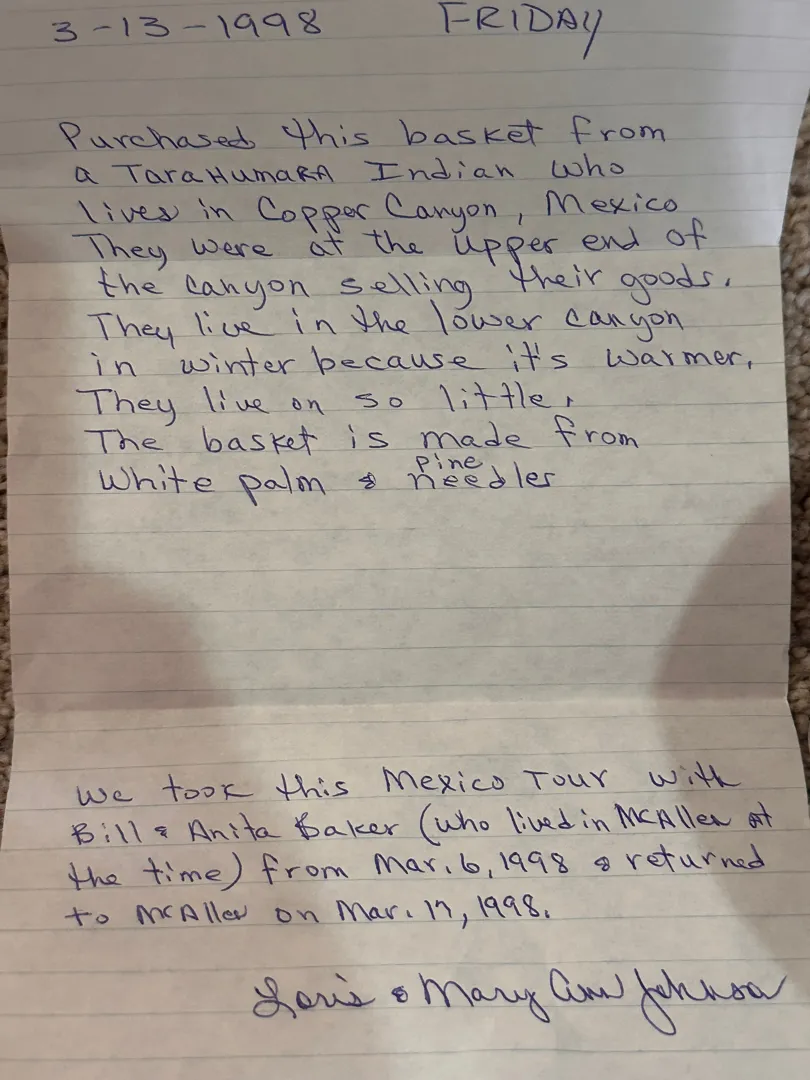 3-13-1998 FRIDAY
Purchased this basket from
a TaraHumaRA Indian who
lives in Copper Canyon, Mexico
They were at the upper end of
the canyon selling their goods.
They live in the lower canyon
in winter because it's warmer.
They live on so little.
The basket is made from
White palm & pine needles
We took this Mexico Tour with
Bill & Anita Baker (who lived in McAllen at
the time) from Mar. 6, 1998 & returned
to McAllen on Mar. 17, 1998.
& Mary Ann Johnson